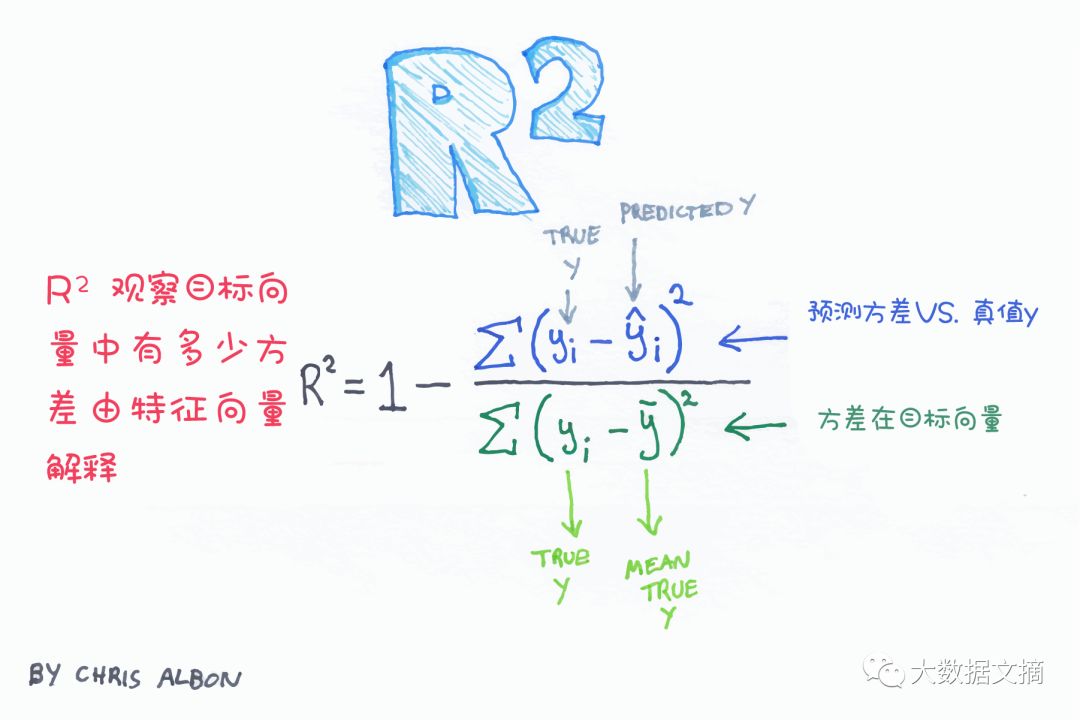 R²
PREDICTED Y
TRUE
Y
R² 观察目标向
量中有多少方
差由特征向量
解释
R² = 1 − Σ(yᵢ − ŷᵢ)² / Σ(yᵢ − ȳ)²
预测方差VS. 真值y
方差在目标向量
TRUE
Y
MEAN
TRUE
Y
BY CHRIS ALBON
大数据文摘